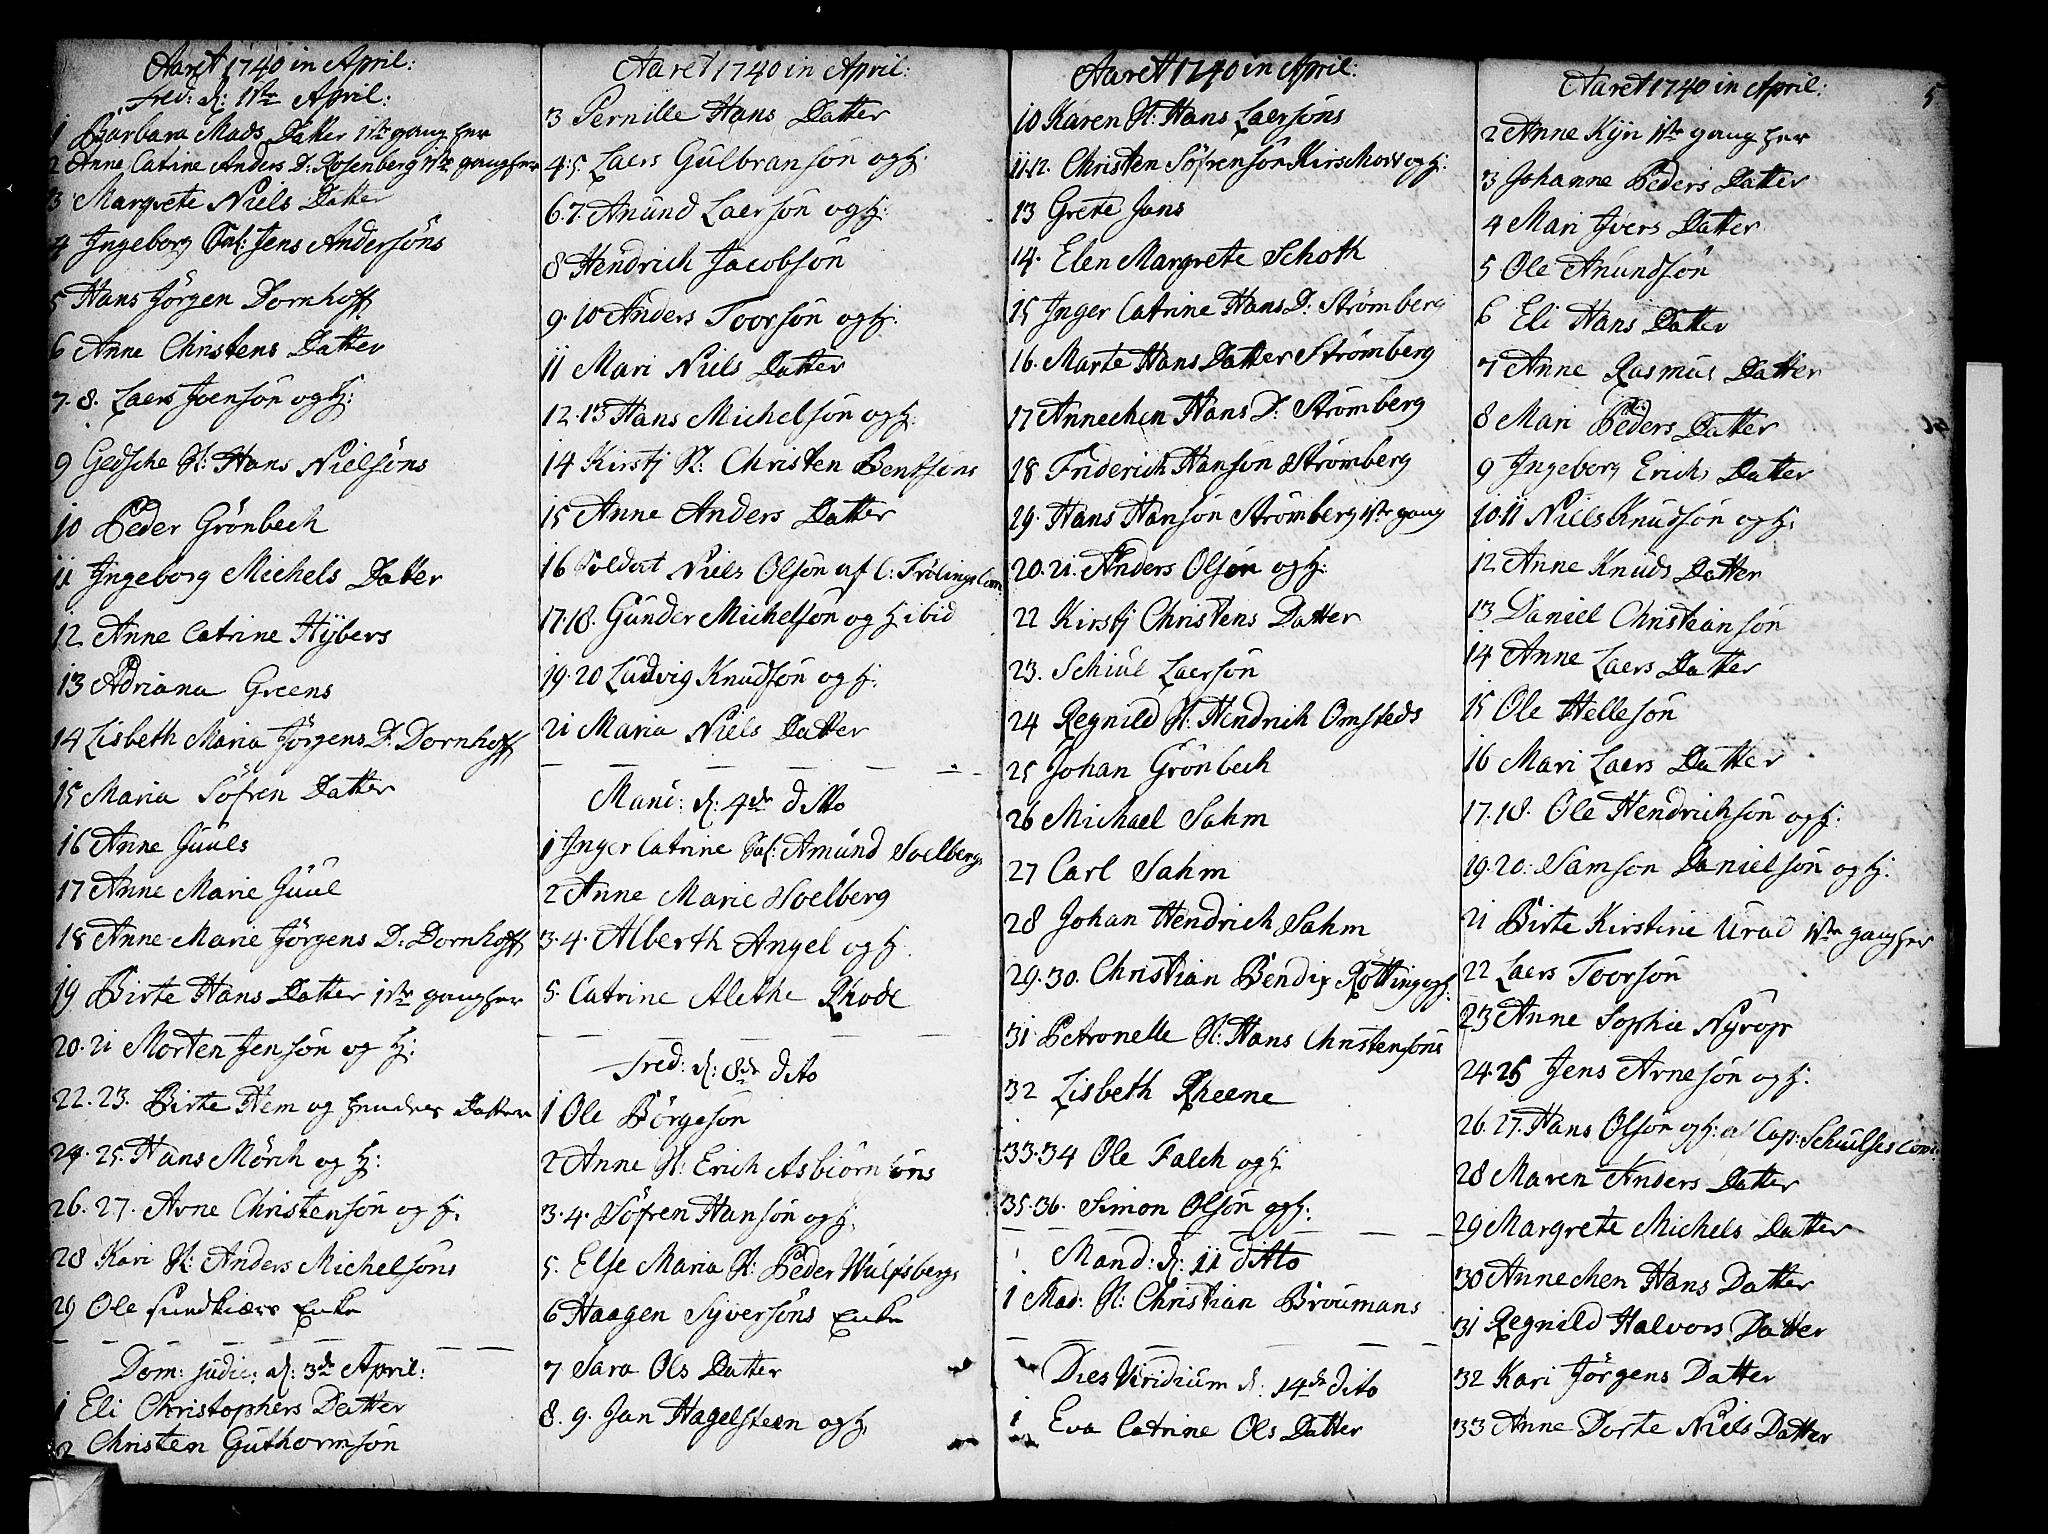 Aaret 1740 in April:
Fred: d: 1ste April:
1 Barbara Mads Datter 1ste gang her
2 Anne Catrine Anders D: Rosenberg 1ste gang her
3 Margrete Niels Datter
4 Ingeborg Sal: Jens Andersöns
5 Hans Jörgen Dornhoff
6 Anne Christens Datter
7. 8. Laers Joensön og H:
9 Gedsche H: Hans Nielsöns
10 Peder Grönbech
11 Ingeborg Michels Datter
12 Anne Catrine Hÿbers
13 Adriana Greens
14 Lisbeth Maria Jörgens D: Dornhoff
15 Maria Söfren Datter
16 Anne Juuls
17 Anne Marie Juul
18 Anne Marie Jörgens D: Dornhoff
19 Birte Hans Datter 1ste gang her
20. 21 Morten Jensön og H:
22. 23. Birte Hem og hendes Datter
24. 25. Hans Mörch og H:
26. 27. Arne Christensön og H:
28 Kari H: Anders Michelsöns
29 Ole Sundkiærs Enke
Dom: judic: d: 3de April:
1 Eli Christophers Datter
2 Christen Guthormsön
Aaret 1740 in April:
3 Pernille Hans Datter
4: 5. Laers Gulbransön og H:
6. 7. Anund Laersön og H:
8 Hendrich Jacobsön
9. 10 Anders Toorsön og H:
11 Mari Niels Datter
12. 13 Hans Michelsön og H:
14 Kirstj H: Christen Bentsöns
15 Anne Anders Datter
16 Soldat Niels Olsön af C: Frölings Com:
17. 18. Gunder Michelsön og H ibid
19. 20 Ludvig Knudsön og H:
21 Maria Niels Datter
Mand: d: 4de ditto
1 Inger Catrine Sal: Amund Soelbergs
2 Anne Marie Soelberg
3. 4. Alberth Angel og H:
5. Catrine Alethe Rhode
Fred: d: 8de dito
1 Ole Börgesön
2 Anne H: Erich Asbiörnsöns
3. 4. Söfren Hansön og H:
5. Else Maria H: Peder Wulfsbergs
6 Haagen Syversöns Enke
7 Sara Ols Datter
8. 9. Jan Hagelsteen og H:
Aaret 1740 in April:
10 Karen H: Hans Laersöns
11. 12. Christen Söfrensön Kirschow og H:
13 Grete Jans
14. Elen Margrete Schoth
15 Inger Catrine Hans D: Strömberg
16. Marte Hans Datter Strömberg
17 Annechen Hans D: Strömberg
18 Friderich Hansön Strömberg
29. Hans Hansön Strömberg 1ste gang
20. 21. Anders Olsön og H:
22 Kirstj Christens Datter
23. Schiul Laersön
24 Regnild H: Hendrich Omsteds
25 Johan Grönbech
26 Michael Sahm
27 Carl Sahm
28 Johan Hendrich Sahm
29. 30. Christian Bendix Rötting og H:
31 Petronelle H: Hans Christensöns
32 Lisbeth Rheene
33. 34 Ole Falch og H
35. 36. Simon Olsön og H:
Mand: d: 11 ditto
1 Mad: H: Christian Broumans
Dies Viridium d: 14de dito
1 Eva Catrine Ols Datter
Aaret 1740 in April: 5
2 Anne Kÿn 1ste gang her
3 Johanne Peders Datter
4 Mari Ivers Datter
5 Ole Anundsön
6 Eli Hans Datter
7 Anne Rasmus Datter
8 Mari Peders Datter
9 Ingeborg Erichs Datter
10. 11 Niels Knudsön og H:
12 Anne Knuds Datter
13 Daniel Christiansön
14 Anne Laers Datter
15 Ole Hellesön
16 Mari Laers Datter
17. 18. Ole Hendrichsön og H:
19. 20. Samson Danielsön og H:
21 Birte Kirstine Urad 1ste gang her
22 Laers Toorsön
23 Anne Sophie Nyrops
24. 25 Jens Arnesön og H:
26. 27. Hans Olsön og H: a Cap: Schulses Com:
28 Maren Anders Datter
29 Margrete Michels Datter
30 Annechen Hans Datter
31 Regnild Halvors Datter
32 Kari Jörgens Datter
33 Anne Dorte Niels Datter